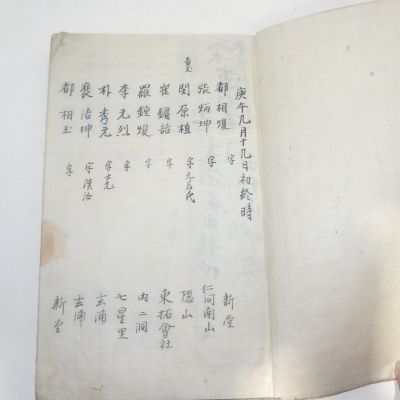 庚午九月十九日初終時
都相燮 字 新堂
張炳坤 字 仁同南山
閔原植 字元名氏 隱山
崔鏞喆 字 東拓會社
羅鐘燮 字 內二洞
李元烈 字 七星里
朴秀元 字士元 玄浦
裵洁坤 字漢汝 玄浦
都相玉 字 新堂